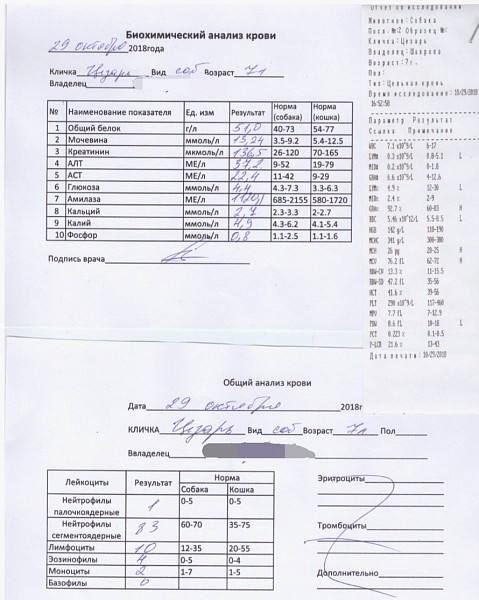 Биохимический анализ крови
29 октября 2018года
Кличка Цезарь Вид соб Возраст 7л
Владелец
№ Наименование показателя Ед. изм Результат Норма (собака) Норма (кошка)
1 Общий белок г/л 51,0 40-73 54-77
2 Мочевина ммоль/л 13,24 3.5-9.2 5.4-12.5
3 Креатинин мкмоль/л 136,5 26-120 70-165
4 АЛТ МЕ/л 37,2 9-52 19-79
5 АСТ МЕ/л 22,4 11-42 9-29
6 Глюкоза ммоль/л 4,4 4.3-7.3 3.3-6.3
7 Амилаза МЕ/л 1120,1 685-2155 580-1720
8 Кальций ммоль/л 2,7 2.3-3.3 2-2.7
9 Калий ммоль/л 4,9 4.3-6.2 4.1-5.4
10 Фосфор ммоль/л 0,8 1.1-2.5 1.1-1.6
Подпись врача
Отчет об исследовании
Животное: Собака
Посл. №:2 Образец №:
Кличка: Цезарь
Владелец:
Возраст: 7г.
Пол:
Тип: Цельная кровь
Время исследования: 10/29/2018
16:52:58
Параметр Результат
Ссылка Примечание
WBC 7.1 x10^9/L 6-17
LYM# 0.3 x10^9/L 0.8-5.1 L
MID# 0.2 x10^9/L 0-1.8
GRN# 6.6 x10^9/L 4-12.6
LYM% 4.9 % 12-30 L
MID% 2.4 % 2-9
GRN% 92.7 % 60-83 H
RBC 5.46 x10^12/L 5.5-8.5 L
HGB 142 g/L 110-190
MCHC 341 g/L 300-380
MCH 26 pg 20-25 H
MCV 76.2 fL 62-72 H
RDW-CV 13.3 % 11-15.5
RDW-SD 47.2 fL 35-56
HCT 41.6 % 39-56
PLT 290 x10^9/L 117-460
MPV 7.7 fL 7-12.9
PDW 8.6 fL 10-18 L
PCT 0.223 % 0.1-0.5
P-LCR 21.6 % 13-43
Дата печати: 10/29/2018
Общий анализ крови
Дата 29 октября 2018г
КЛИЧКА Цезарь Вид соб Возраст 7л Пол
Ввладелец
Лейкоциты Результат Норма
Собака Кошка
Нейтрофилы палочкоядерные 1 0-5 0-5
Нейтрофилы сегментоядерные 83 60-70 35-75
Лимфоциты 10 12-35 20-55
Эозинофилы 4 0-5 0-4
Моноциты 2 1-7 1-5
Базофилы 0
Эритроциты
Тромбоциты
Дополнительно